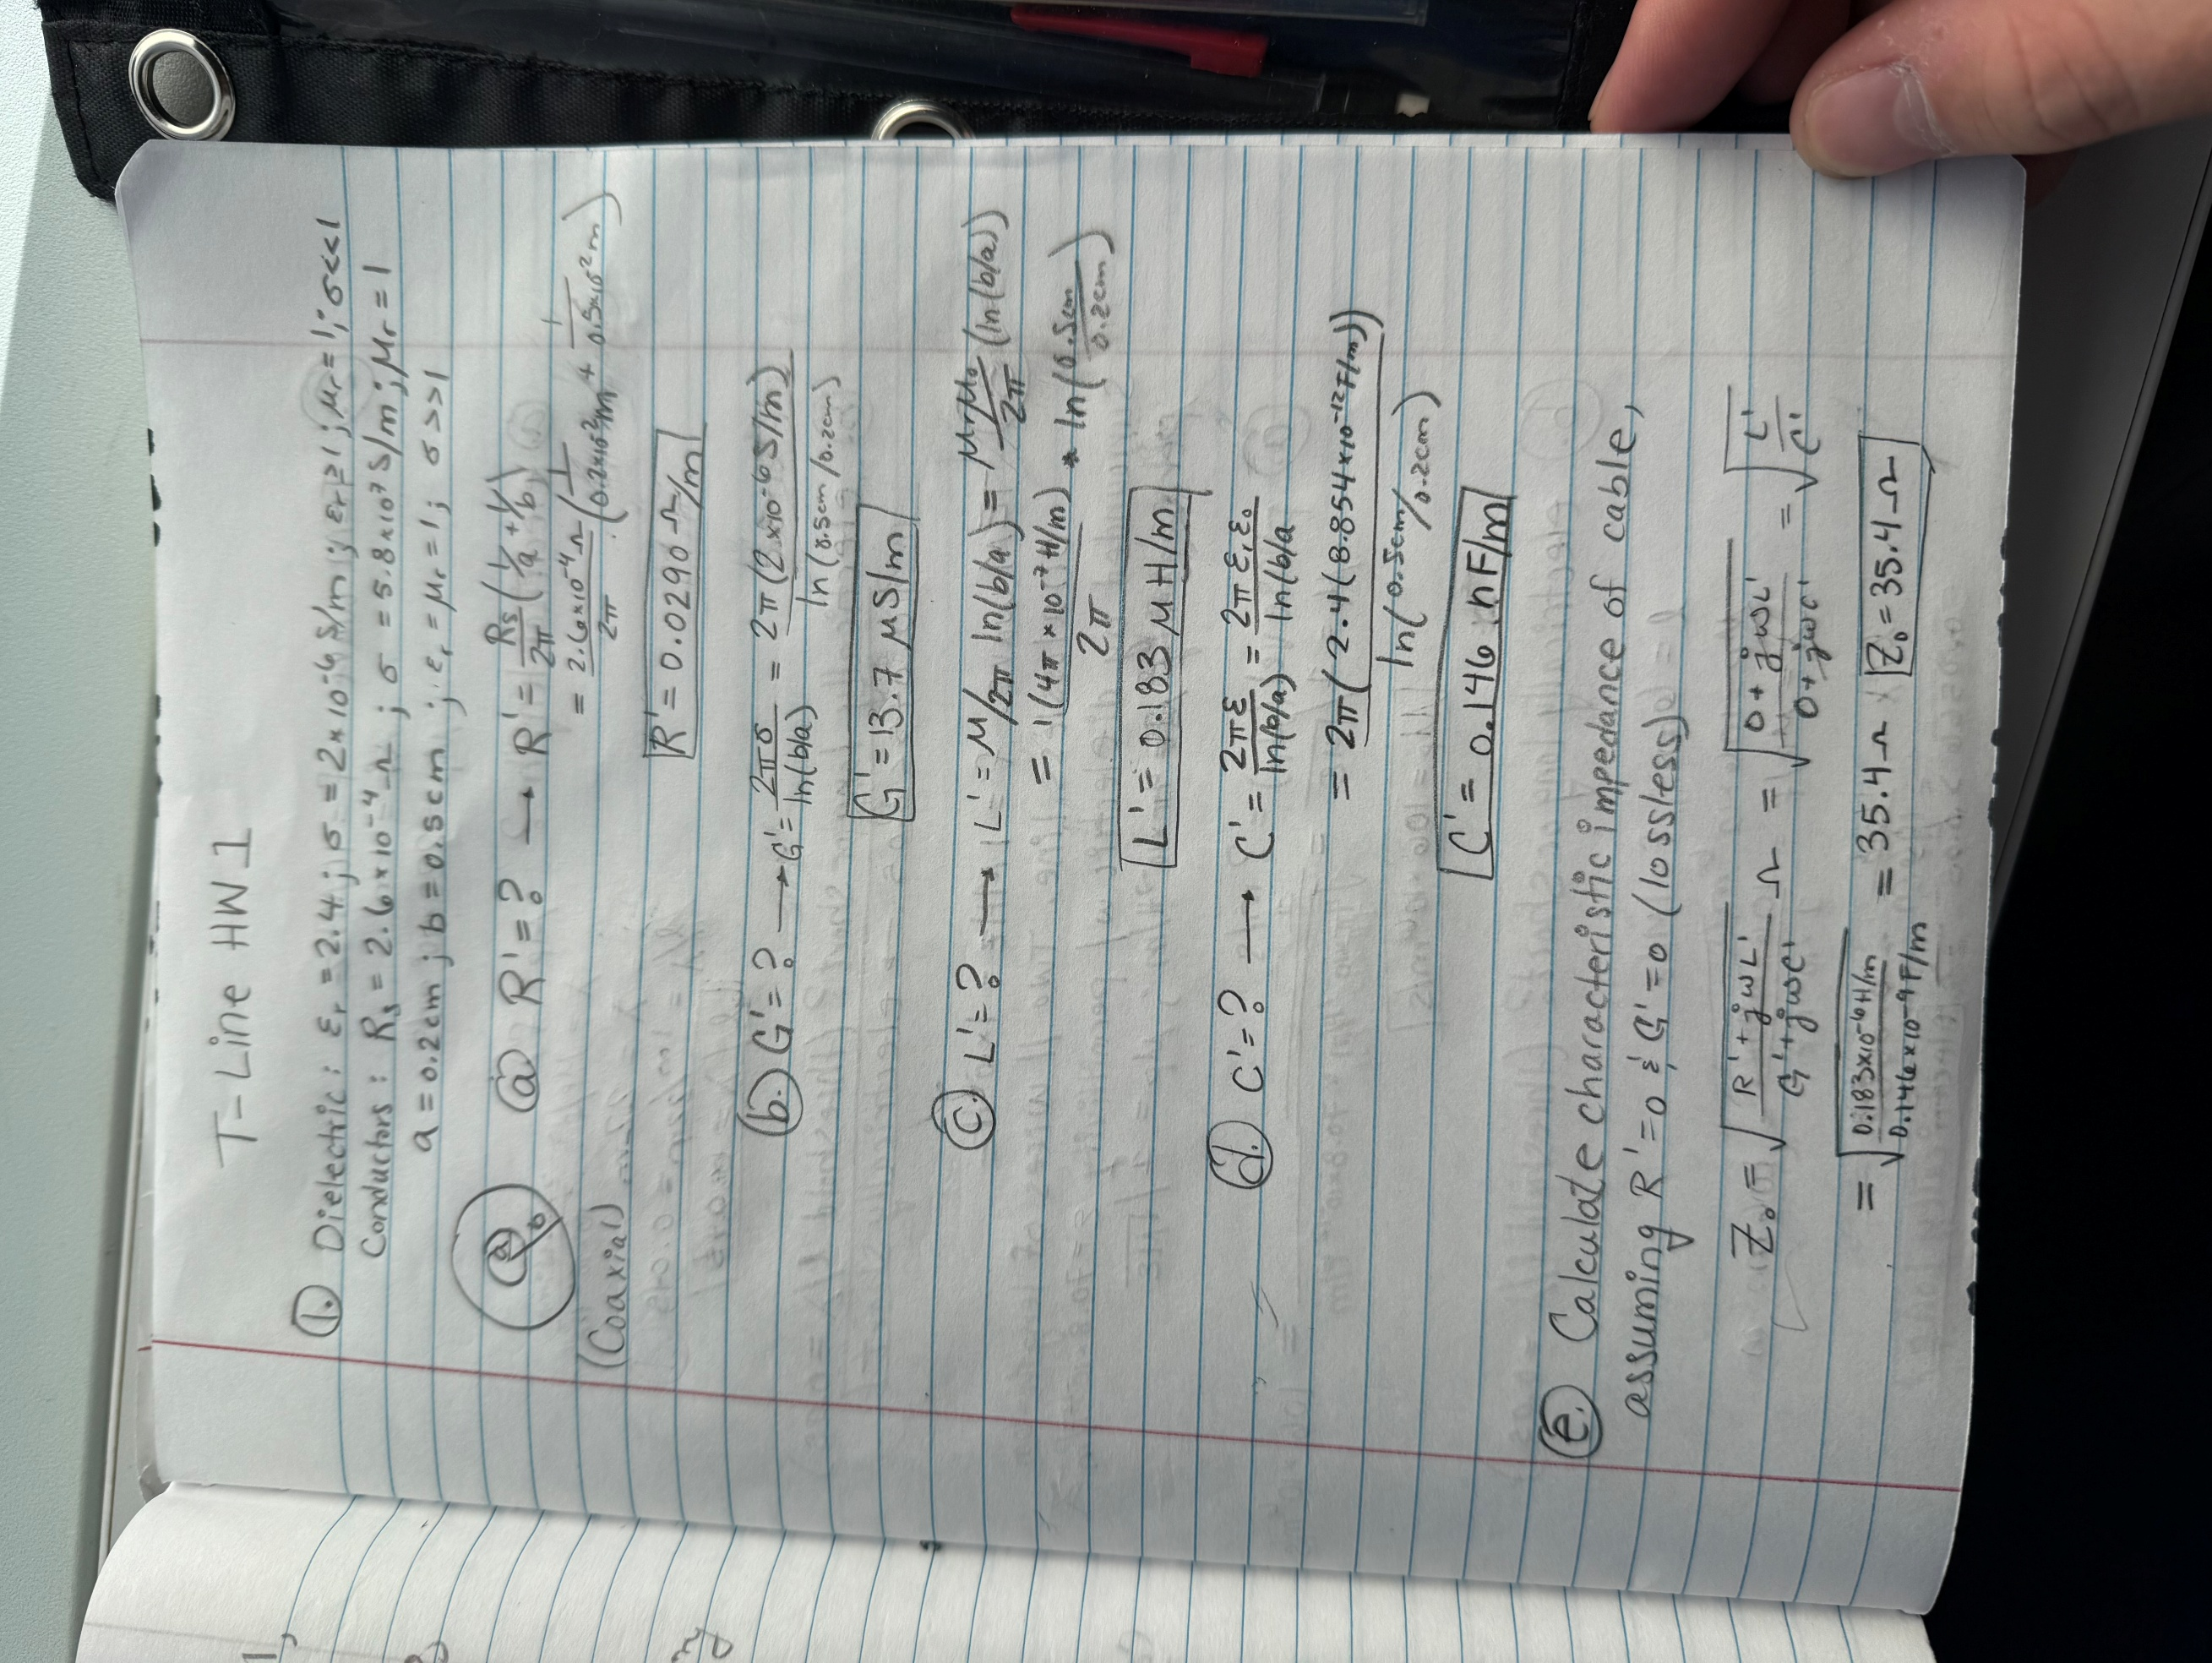 T-Line HW 1
1. Dielectric: εr = 2.4; σ = 2×10⁻⁶ S/m; εr ≥ 1; μr = 1; σ<<1
Conductors: Rs = 2.6×10⁻⁴ Ω; σ = 5.8×10⁷ S/m; μr = 1
a = 0.2cm; b = 0.5cm; εr = μr = 1; σ >> 1
a b
(Coaxial)
a R' = ? → R' = Rs/2π (1/a + 1/b)
= 2.6×10⁻⁴Ω/2π · (1/0.2×10⁻²m + 1/0.5×10⁻²m)
R' = 0.0290 Ω/m
b. G' = ? → G' = 2πσ/ln(b/a) = 2π(2×10⁻⁶ S/m)/ln(0.5cm/0.2cm)
G' = 13.7 μS/m
c. L' = ? → L' = μ/2π ln(b/a) = μrμ₀/2π (ln(b/a))
= 1(4π×10⁻⁷ H/m)/2π * ln(0.5cm/0.2cm)
L' = 0.183 μH/m
d. C' = ? → C' = 2πε/ln(b/a) = 2πεrε₀/ln(b/a
= 2π(2.4(8.854×10⁻¹²F/m))/ln(0.5cm/0.2cm)
C' = 0.146 nF/m
e. Calculate characteristic impedance of cable,
assuming R' = 0 & G' = 0 (lossless)
Z₀ = √(R' + jωL'/G' + jωC') Ω = √(0 + jωL'/0 + jωC') = √(L'/C')
= √(0.183×10⁻⁶H/m/0.146×10⁻⁹F/m) = 35.4 Ω Z₀ = 35.4 Ω